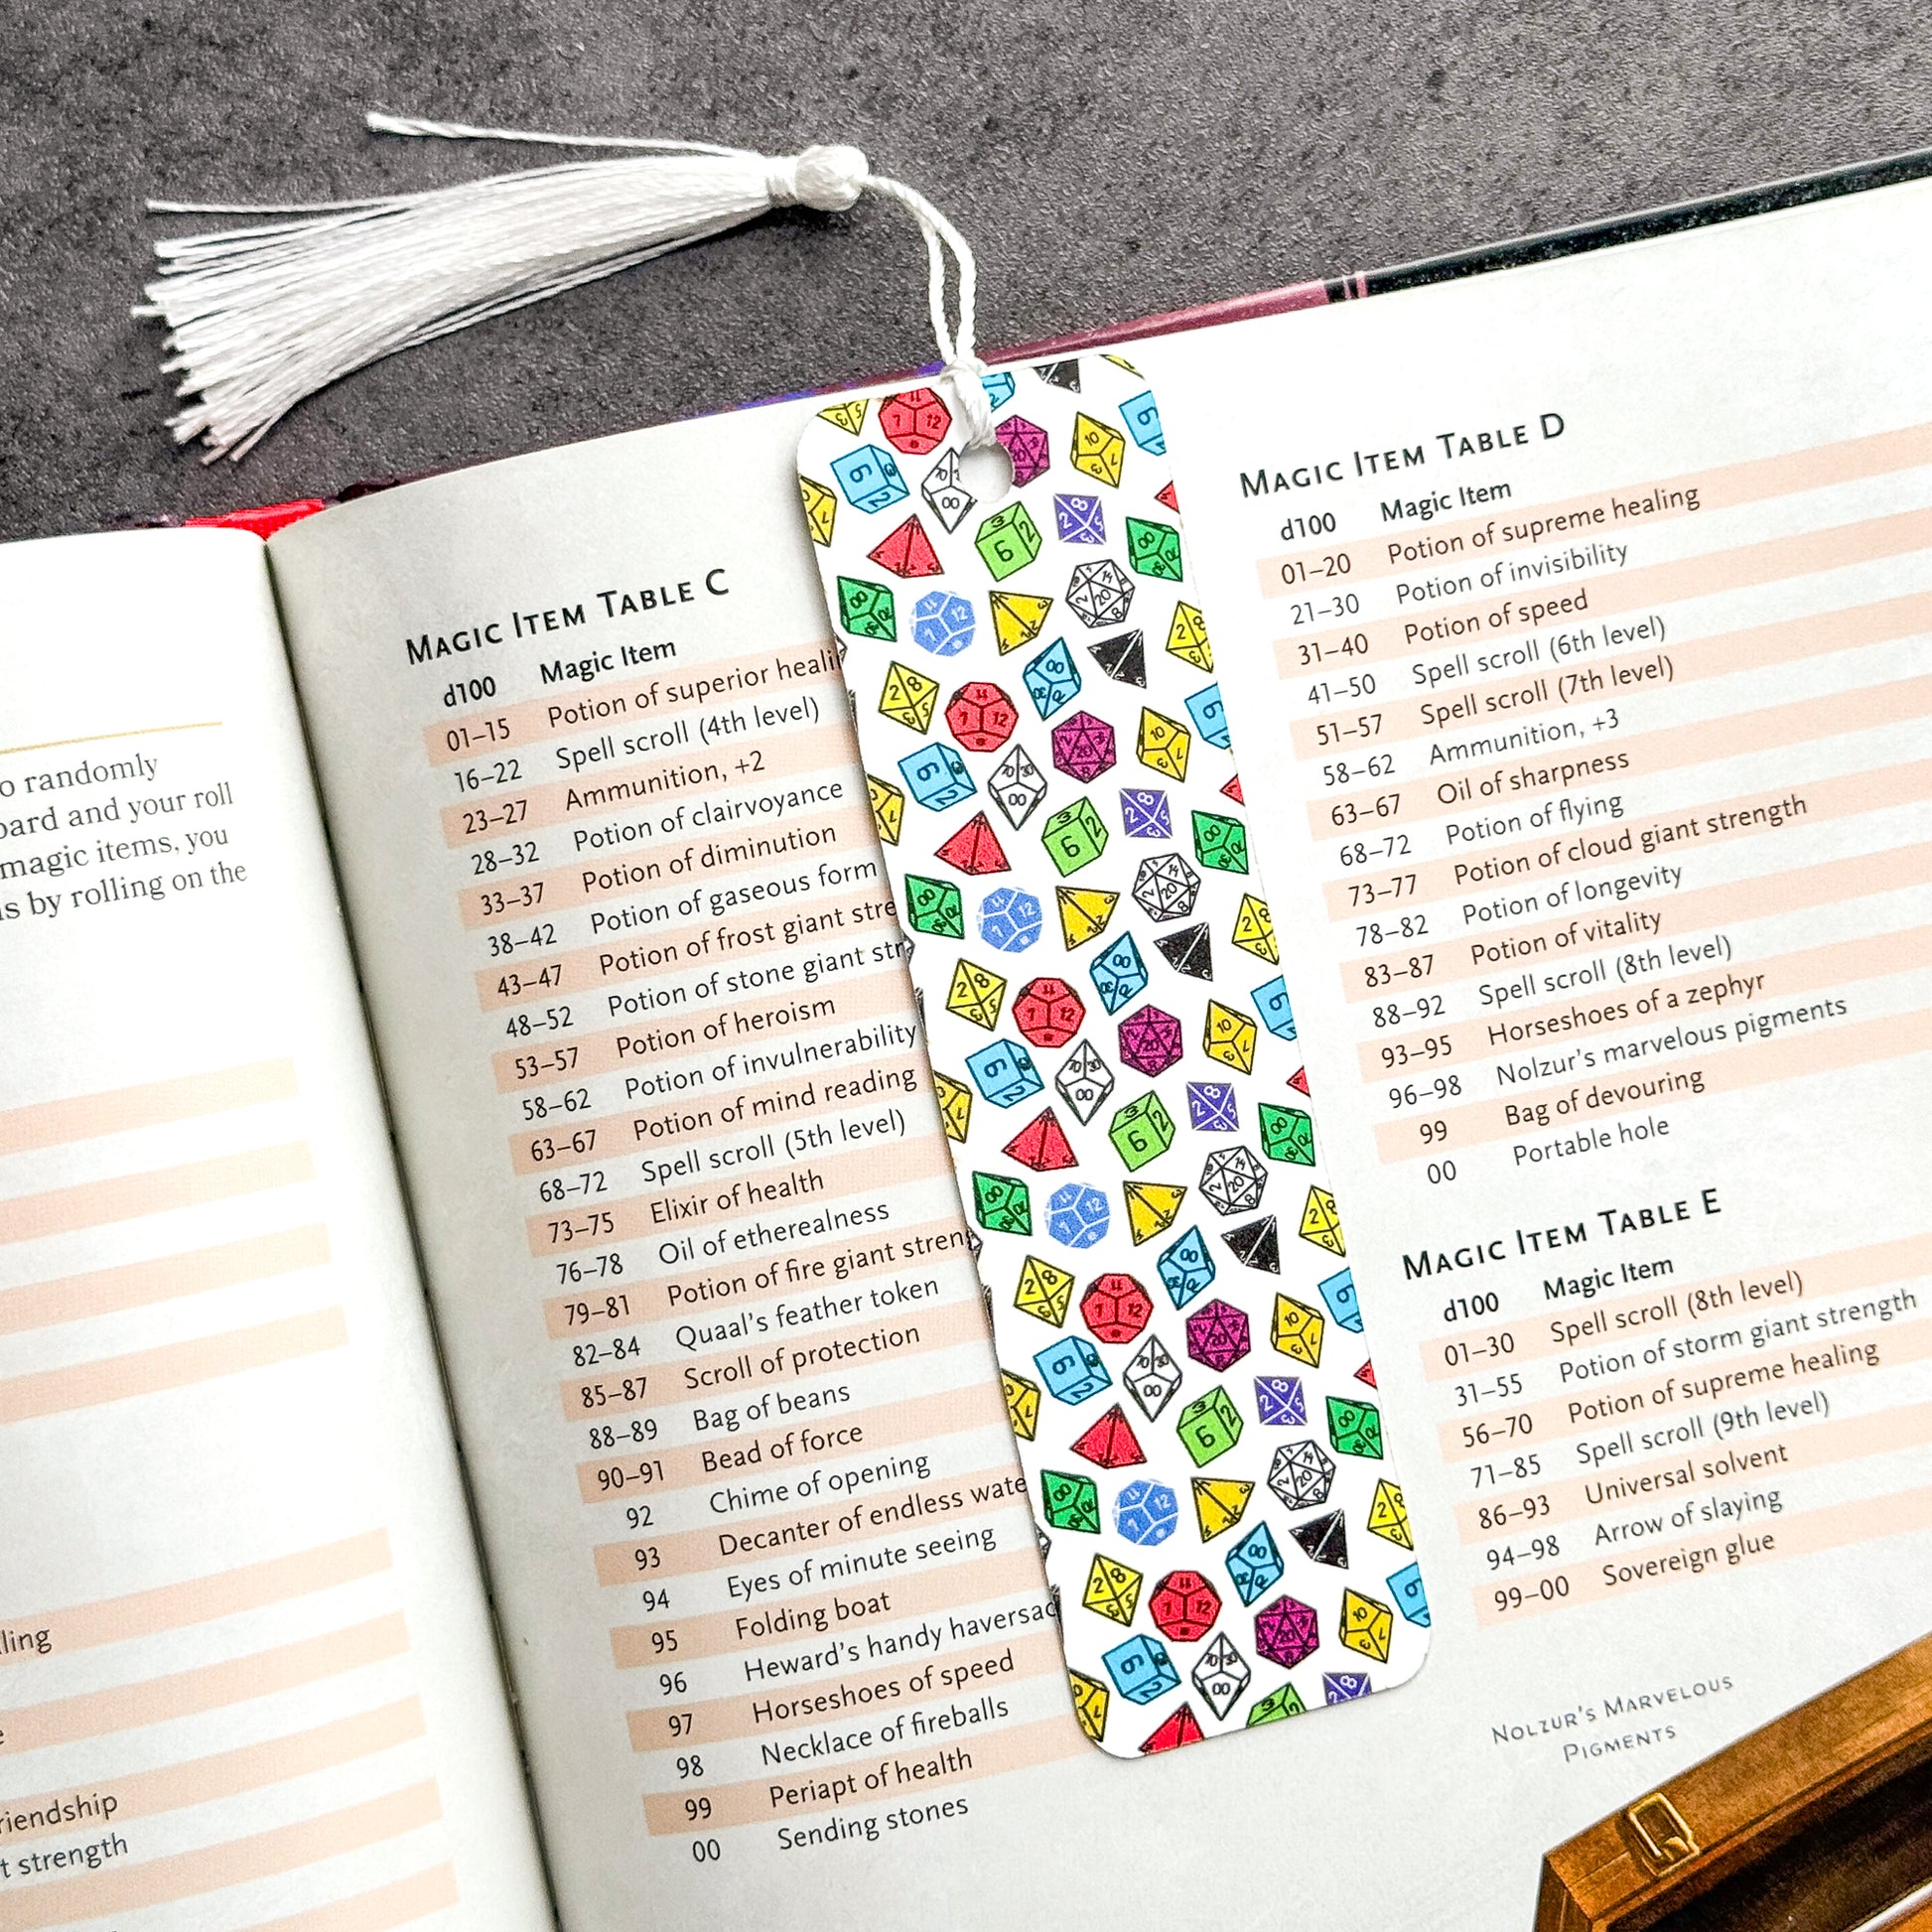 o randomly
oard and your roll
magic items, you
s by rolling on the
ling
riendship
t strength
MAGIC ITEM TABLE C
d100 Magic Item
01–15 Potion of superior heali
16–22 Spell scroll (4th level)
23–27 Ammunition, +2
28–32 Potion of clairvoyance
33–37 Potion of diminution
38–42 Potion of gaseous form
43–47 Potion of frost giant stre
48–52 Potion of stone giant str
53–57 Potion of heroism
58–62 Potion of invulnerability
63–67 Potion of mind reading
68–72 Spell scroll (5th level)
73–75 Elixir of health
76–78 Oil of etherealness
79–81 Potion of fire giant streng
82–84 Quaal's feather token
85–87 Scroll of protection
88–89 Bag of beans
90–91 Bead of force
92 Chime of opening
93 Decanter of endless wate
94 Eyes of minute seeing
95 Folding boat
96 Heward's handy haversac
97 Horseshoes of speed
98 Necklace of fireballs
99 Periapt of health
00 Sending stones
MAGIC ITEM TABLE D
d100 Magic Item
01–20 Potion of supreme healing
21–30 Potion of invisibility
31–40 Potion of speed
41–50 Spell scroll (6th level)
51–57 Spell scroll (7th level)
58–62 Ammunition, +3
63–67 Oil of sharpness
68–72 Potion of flying
73–77 Potion of cloud giant strength
78–82 Potion of longevity
83–87 Potion of vitality
88–92 Spell scroll (8th level)
93–95 Horseshoes of a zephyr
96–98 Nolzur's marvelous pigments
99 Bag of devouring
00 Portable hole
MAGIC ITEM TABLE E
d100 Magic Item
01–30 Spell scroll (8th level)
31–55 Potion of storm giant strength
56–70 Potion of supreme healing
71–85 Spell scroll (9th level)
86–93 Universal solvent
94–98 Arrow of slaying
99–00 Sovereign glue
NOLZUR'S MARVELOUS
PIGMENTS